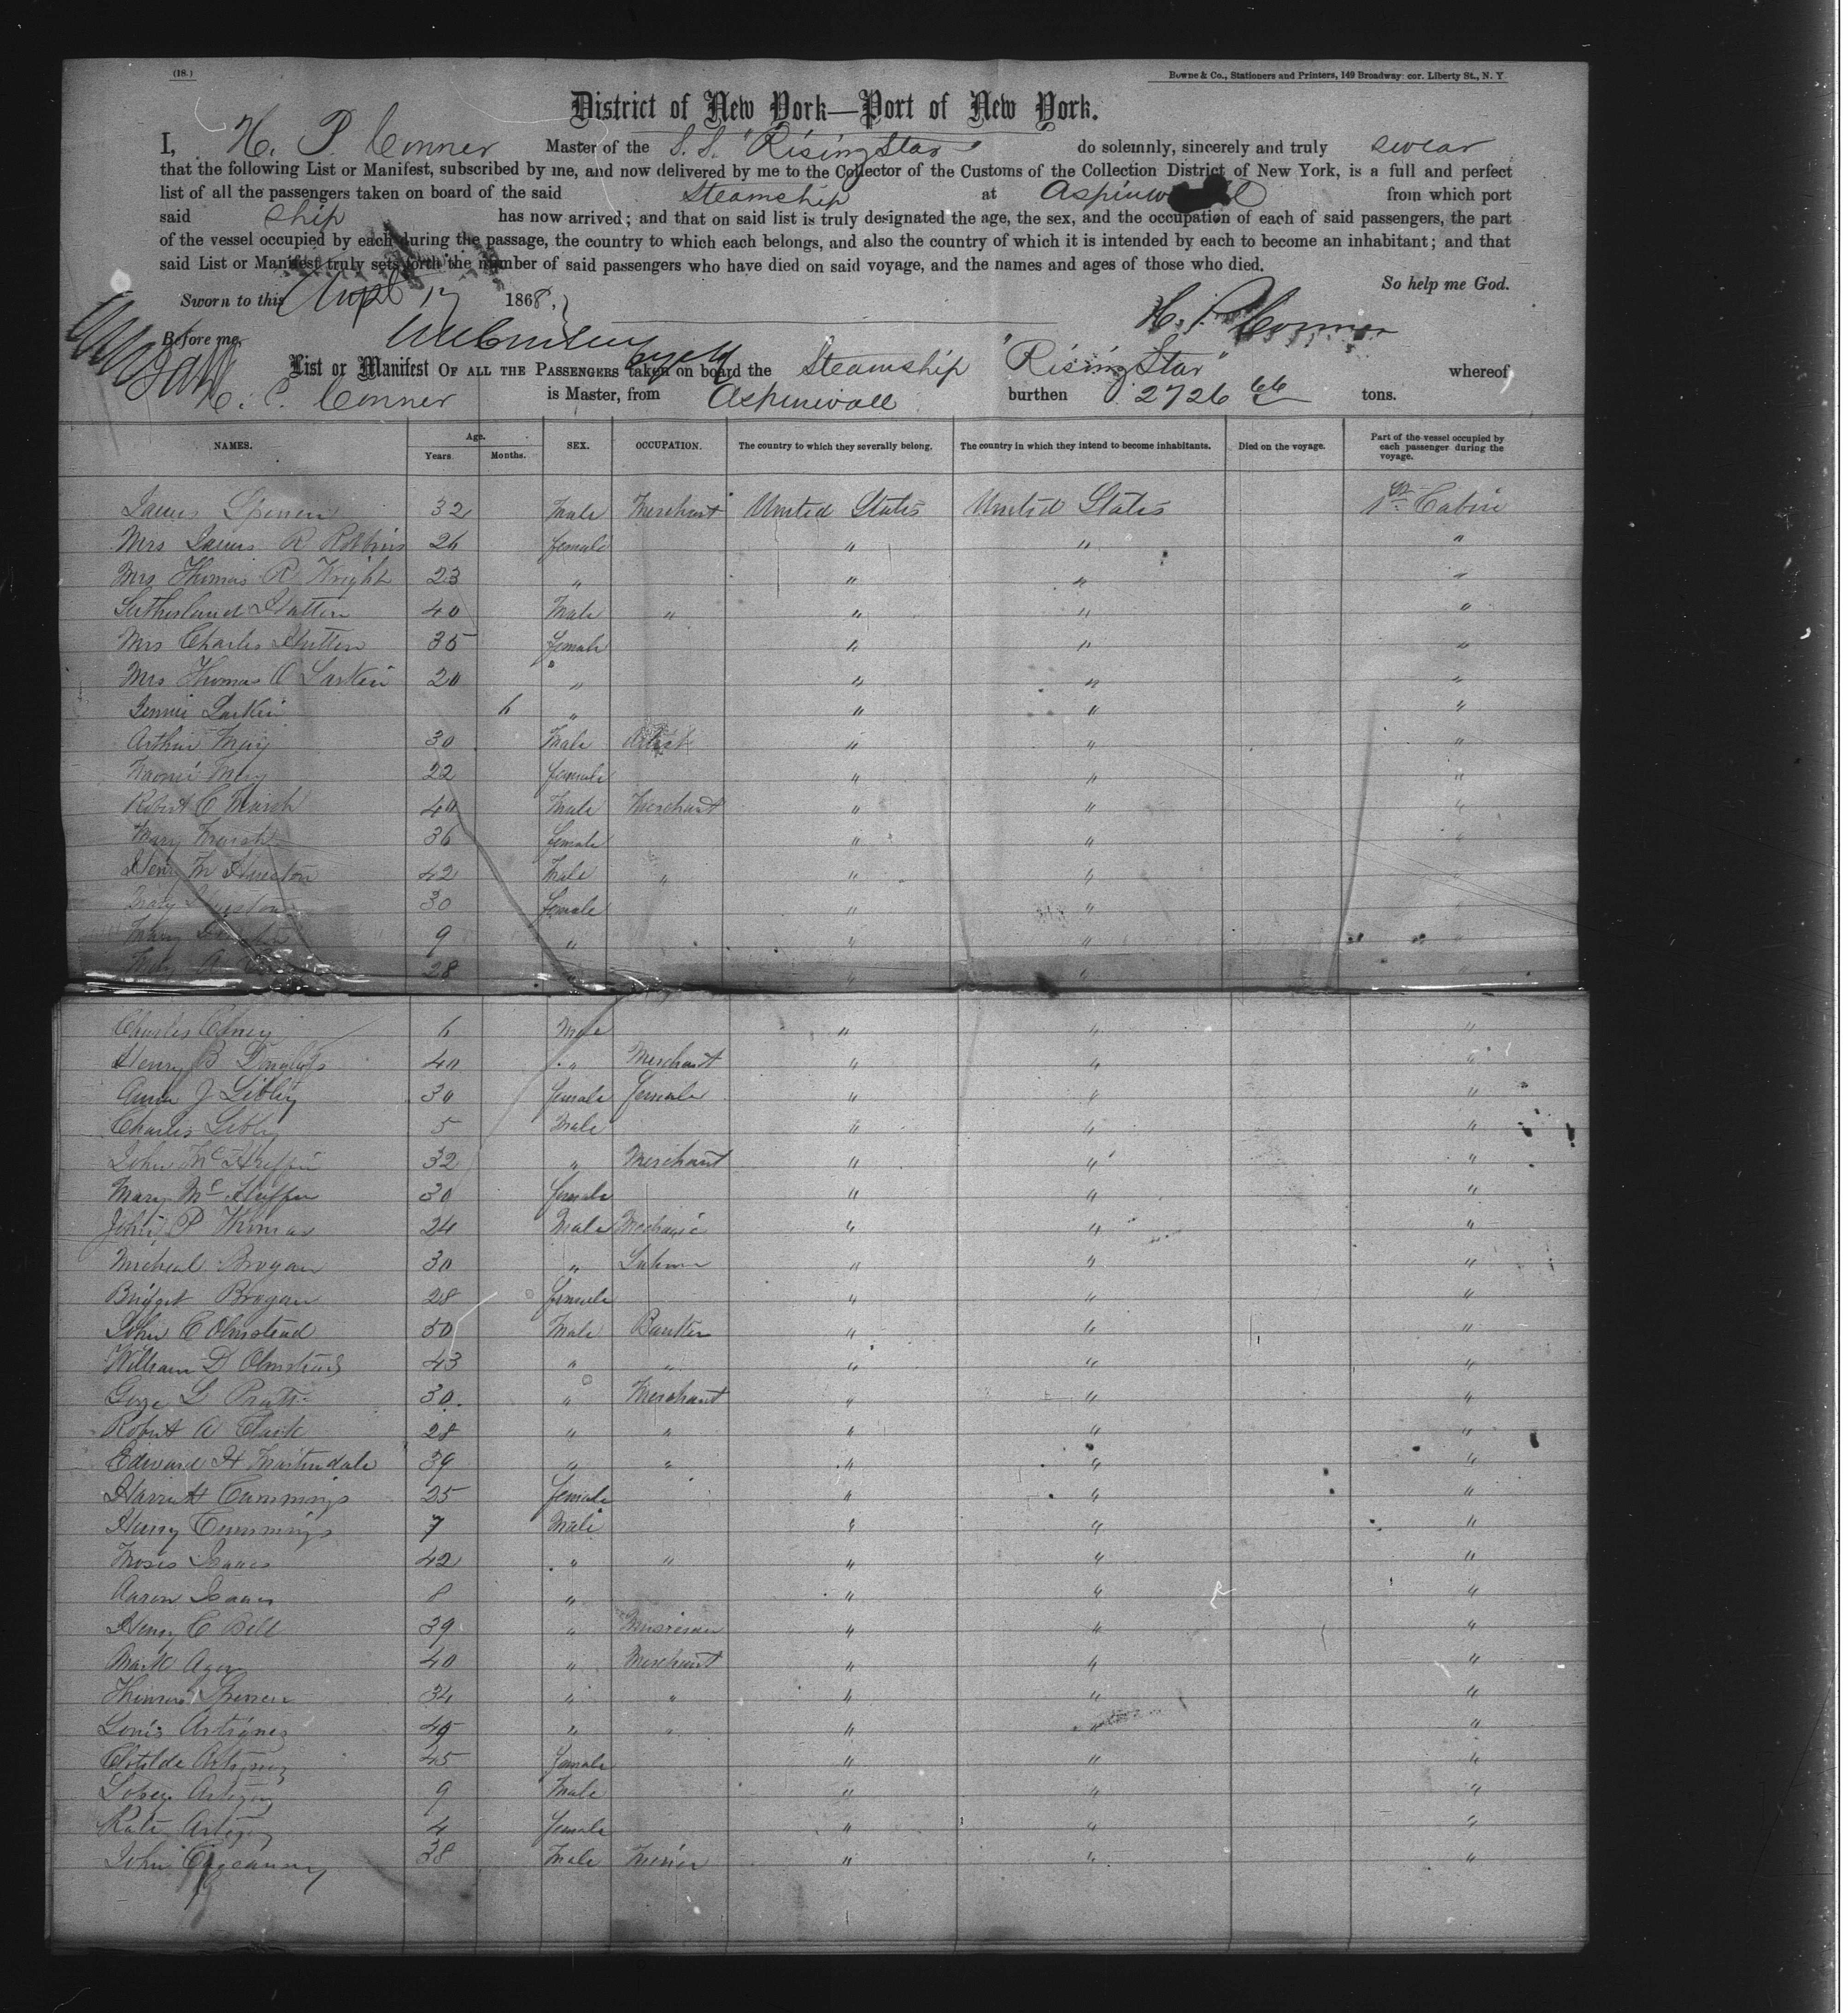 (18.)
Bowne & Co., Stationers and Printers, 149 Broadway cor. Liberty St., N. Y
District of New York—Port of New York.
I, H. P. Conner Master of the S. S. "Rising Star" do solemnly, sincerely and truly swear
that the following List or Manifest, subscribed by me, and now delivered by me to the Collector of the Customs of the Collection District of New York, is a full and perfect
list of all the passengers taken on board of the said Steamship at Aspinwall from which port
said ship has now arrived; and that on said list is truly designated the age, the sex, and the occupation of each of said passengers, the part
of the vessel occupied by each during the passage, the country to which each belongs, and also the country of which it is intended by each to become an inhabitant; and that
said List or Manifest truly sets forth the number of said passengers who have died on said voyage, and the names and ages of those who died.
So help me God.
Sworn to this 17 1868.
H. P. Conner
Before me,
List or Manifest OF ALL THE PASSENGERS taken on board the Steamship "Rising Star" whereof
H. P. Conner is Master, from Aspinwall burthen 2726 66 tons.
NAMES. Age. Years. Months. SEX. OCCUPATION. The country to which they severally belong. The country in which they intend to become inhabitants. Died on the voyage. Part of the vessel occupied by each passenger during the voyage.
James Spencer 32 Male Merchant United States United States 1st Cabin
Mrs James R Robbins 26 female " " "
Mrs Thomas R Knight 23 " " " "
Sutherland Hutton 40 Male " " " "
Mrs Charles Hutton 35 female " " "
Mrs Thomas O Larkin 20 " " " "
Jennie Larkin 6 " " " "
Arthur May 30 Male Artist " " "
Naomi May 22 female " " "
Robert C Marsh 40 Male Merchant " " "
Mary Marsh 36 female " " "
Henry M Hueston 42 Male " " " "
Mary Hueston 30 female " " "
Mary 9 " " " "
A 28 " " " "
Charles 6 Male " " "
Henry B Douglass 40 " Merchant " " "
Anna J Libby 30 female female " " "
Charles Libby 5 Male " " "
John Mc 32 " Merchant " " "
Mary Mc 30 female " " "
John P Thomas 24 Male Mechanic " " "
Micheal Brogan 30 " " " "
Bridget Brogan 28 female " " "
John C Olmstead 50 Male Banker " " "
William D Olmstead 43 " " " " "
L Pratt 30 " Merchant " " "
Robert A Clark 28 " " " " "
Edward H Martindale 39 " " " " "
Harriet Cummings 25 female " " "
Harry Cummings 7 Male " " "
Moses Isaacs 42 " " " " "
Aaron Isaacs 8 " " " "
Henry C Bell 39 " " " "
Mark 40 " Merchant " " "
Thomas Spencer 34 " " " " "
Louis Artignez " " " " "
Clotilde Artignez 45 female " " "
Artignez 9 Male " " "
Kate Artignez 4 female " " "
John 38 Male Miner " " "